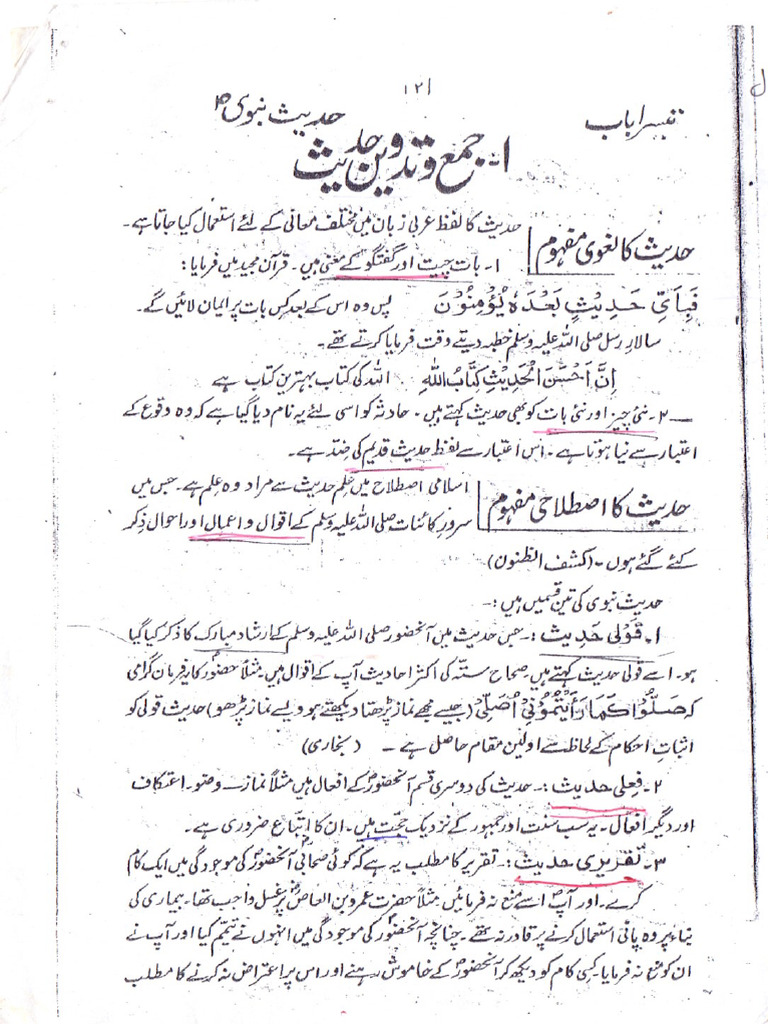 ۱۲۱
تیسرا باب
حدیث نبوی
۱- جمع و تدوین حدیث
حدیث کا لغوی مفہوم
حدیث کا لفظ عربی زبان میں مختلف معانی کے لئے استعمال کیا جاتا ہے۔
۱- بات چیت اور گفتگو کے معنی ہیں۔ قرآن مجید میں فرمایا:
فَبِاَیِّ حَدِیْثٍ بَعْدَہٗ یُؤْمِنُوْنَ پس وہ اس کے بعد کس بات پر ایمان لائیں گے۔
سالار رسل صلی اللہ علیہ وسلم خطبہ دیتے وقت فرمایا کرتے تھے۔
اِنَّ اَحْسَنَ الْحَدِیْثِ کِتَابُ اللّٰہِ اللہ کی کتاب بہترین کتاب ہے
۲- نئی چیز اور نئی بات کو بھی حدیث کہتے ہیں۔ حادثہ کو اسی لئے یہ نام دیا گیا ہے کہ وہ وقوع کے
اعتبار سے نیا ہوتا ہے۔ اس اعتبار سے لفظ حدیث قدیم کی ضد ہے۔
حدیث کا اصطلاحی مفہوم
اسلامی اصطلاح میں علم حدیث سے مراد وہ علم ہے۔ جس میں
سرور کائنات صلی اللہ علیہ وسلم کے اقوال و اعمال اور احوال ذکر
کئے گئے ہوں۔ (کشف الظنون)
حدیث نبوی کی تین قسمیں ہیں:-
۱- قولی حدیث:- جس حدیث میں آنحضور صلی اللہ علیہ وسلم کے ارشاد مبارک کا ذکر کیا گیا
ہو۔ اسے قولی حدیث کہتے ہیں۔ صحاح ستہ کی اکثر احادیث آپ کے اقوال ہیں۔ مثلاً حضورؐ کا یہ فرمان گرامی
کہ صَلُّوْا کَمَا رَأَیْتُمُوْنِیْ اُصَلِّیْ (جیسے مجھے نماز پڑھتا دیکھتے ہو ویسے نماز پڑھو) حدیث قولی کو
اثبات احکام کے لحاظ سے اولین مقام حاصل ہے — (بخاری)
۲- فعلی حدیث:- حدیث کی دوسری قسم آنحضورؐ کے افعال ہیں مثلاً نماز۔ وضو۔ اعتکاف
اور دیگر افعال۔ یہ سب سنت اور جمہور کے نزدیک حجت ہیں۔ ان کا اتباع ضروری ہے۔
۳- تقریری حدیث:- تقریر کا مطلب یہ ہے کہ کوئی صحابی آنحضورؐ کی موجودگی میں ایک کام
کرے۔ اور آپؐ اسے منع نہ فرمائیں۔ مثلاً حضرت عمرو بن العاصؓ پر غسل واجب تھا۔ بیماری کی
بناء پر وہ پانی استعمال کرنے پر قادر نہ تھے۔ چنانچہ آنحضورؐ کی موجودگی میں انہوں نے تیمم کیا اور آپ نے
ان کو منع نہ فرمایا۔ کسی کام کو دیکھ کر آنحضورؐ کے خاموش رہنے اور اس پر اعتراض نہ کرنے کا مطلب